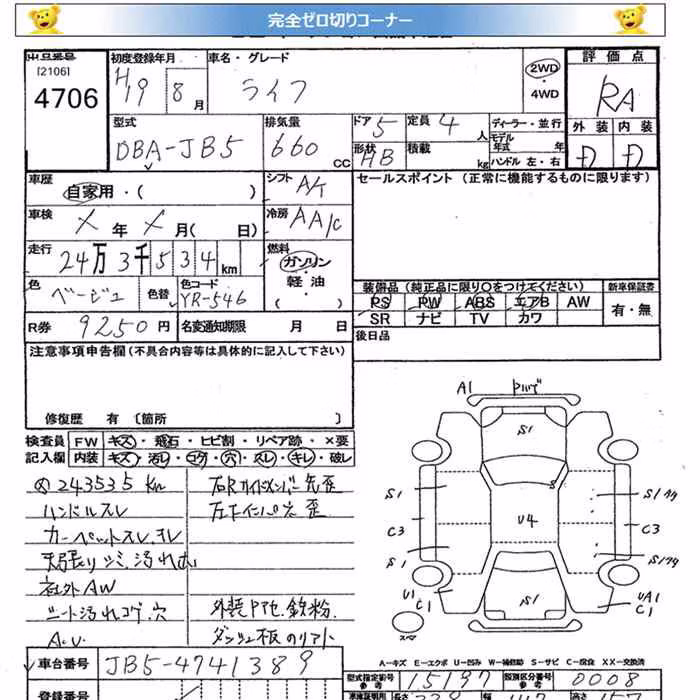 完全ゼロ切りコーナー
出品番号
[2106]
4706
初度登録年月
H19 8月
車名・グレード
ライフ
2WD
・
4WD
評価点
RA
外装 内装
D D
型式
DBA-JB5
排気量
660 CC
ドア 5
形状 HB
定員 4 人
積載 kg
ディーラー・並行
モデル年式 年式
ハンドル 左・右
車歴
自家用・( )
シフト
A/T
セールスポイント(正常に機能するものに限ります)
車検
X年 X月( 日)
冷房
AA/C
走行
24万3千534km
燃料
ガソリン
・
軽油
・
( )
色
ベージュ
色替
色コード
YR-546
装備品(純正品に限り○をつけてください)
新車保証書
PS PW ABS エアB AW
SR ナビ TV カワ
有・無
R券 9250円
名変通知期限 月 日
後日品
注意事項申告欄(不具合内容等は具体的に記入して下さい)
修復歴 有〔箇所 〕
検査員 FW キズ・飛石・ヒビ割・リペア跡・×要
記入欄 内装 キズ・汚レ・コゲ・穴・スレ・キレ・破レ
243535km
ハンドルスレ
カーペットスレ、ヨレ
天張りシミ、汚れ大
社外AW
シート汚れコゲ、穴
右Rサイドメンバー先歪
左Fインパネ先歪
外装PTセ、鉄粉
A1
S1
S1
S1
U4
S
C3
C3
S1
U1
C1
S1
UA1
C1
スペア
A-キズ E-エクボ U-凹み W-補修跡 S-サビ C-腐食 XX-交換済
車台番号 JB5-4741389
型式指定番号 15197
類別区分番号 0008
登録番号
長さ